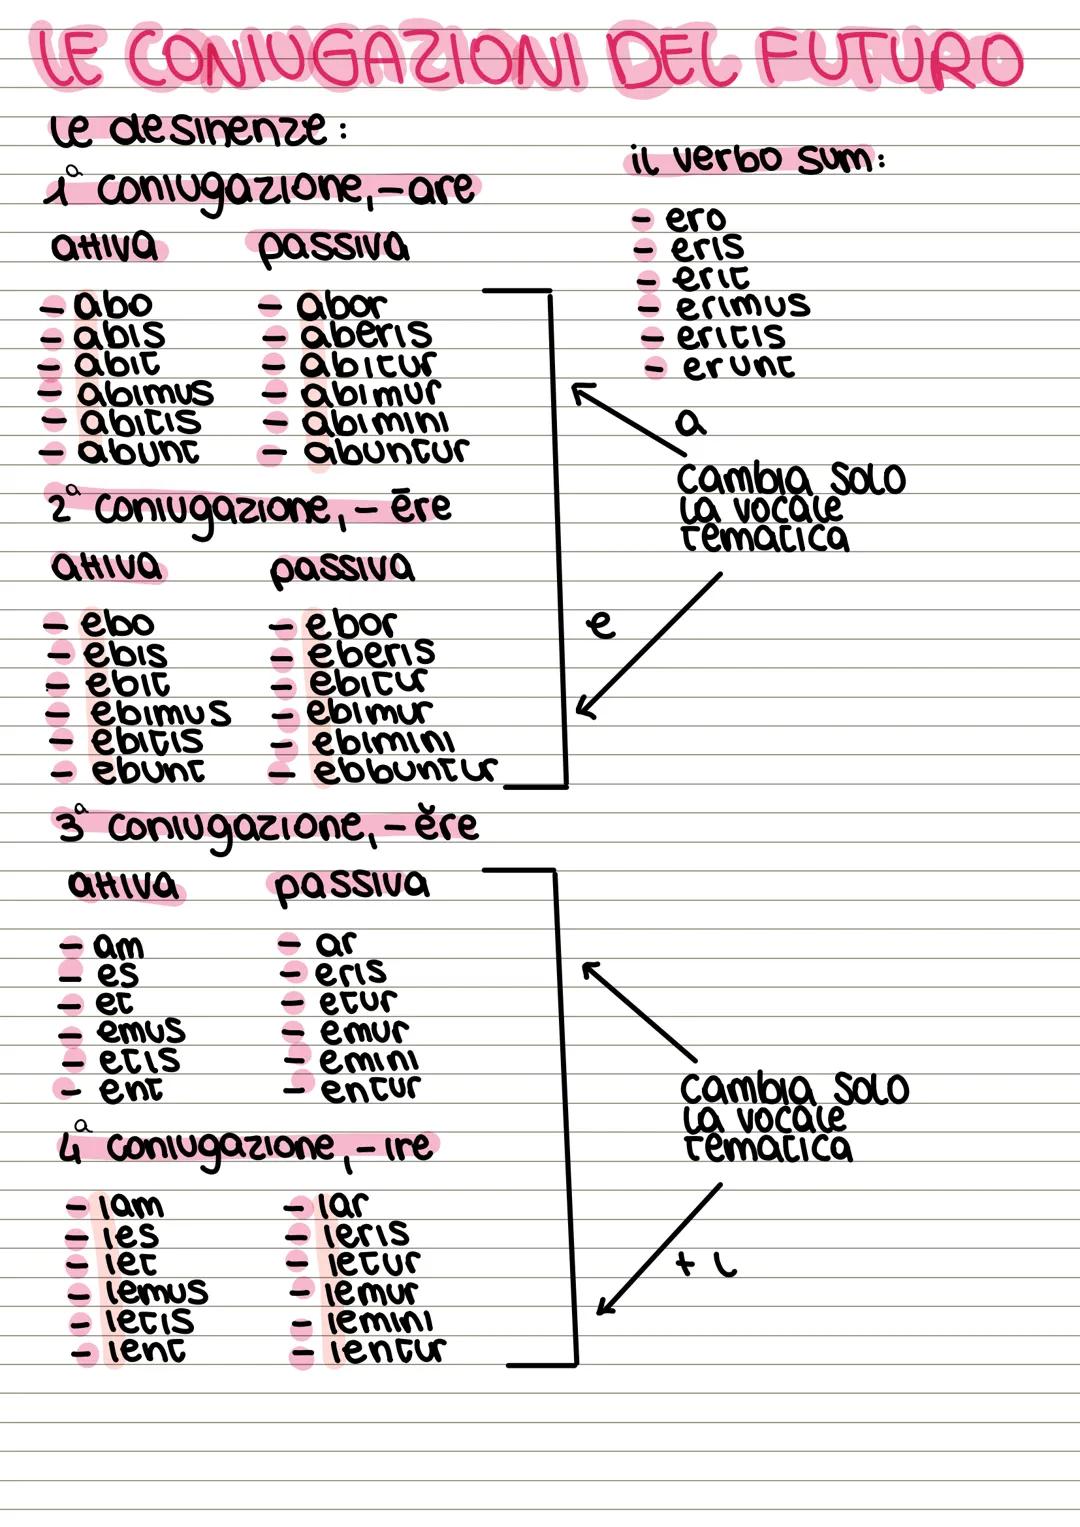 LE CONIUGAZIONI DEL FUTURO
le desinenze:
1ª coniugazione, -are
attiva passiva
- abo - abor
- abis - aberis
- abit - abitur
- abimus - abimur
- abitis - abimini
- abunt - abuntur
il verbo sum:
- ero
- eris
- erit
- erimus
- eritis
- erunt
a
cambia SOLO
la vocale
tematica
2ª coniugazione, - ēre
attiva passiva
- ebo - ebor
- ebis - eberis
- ebit - ebitur
- ebimus - ebimur
- ebitis - ebimini
- ebunt - ebbuntur
e
3ª coniugazione, - ěre
attiva passiva
- am - ar
- es - eris
- et - etur
- emus - emur
- etis - emini
- ent - entur
cambia SOLO
la vocale
tematica
4ª coniugazione, - ire
- iam - iar
- ies - ieris
- iet - ietur
- iemus - iemur
- ietis - iemini
- ient - ientur
+ i